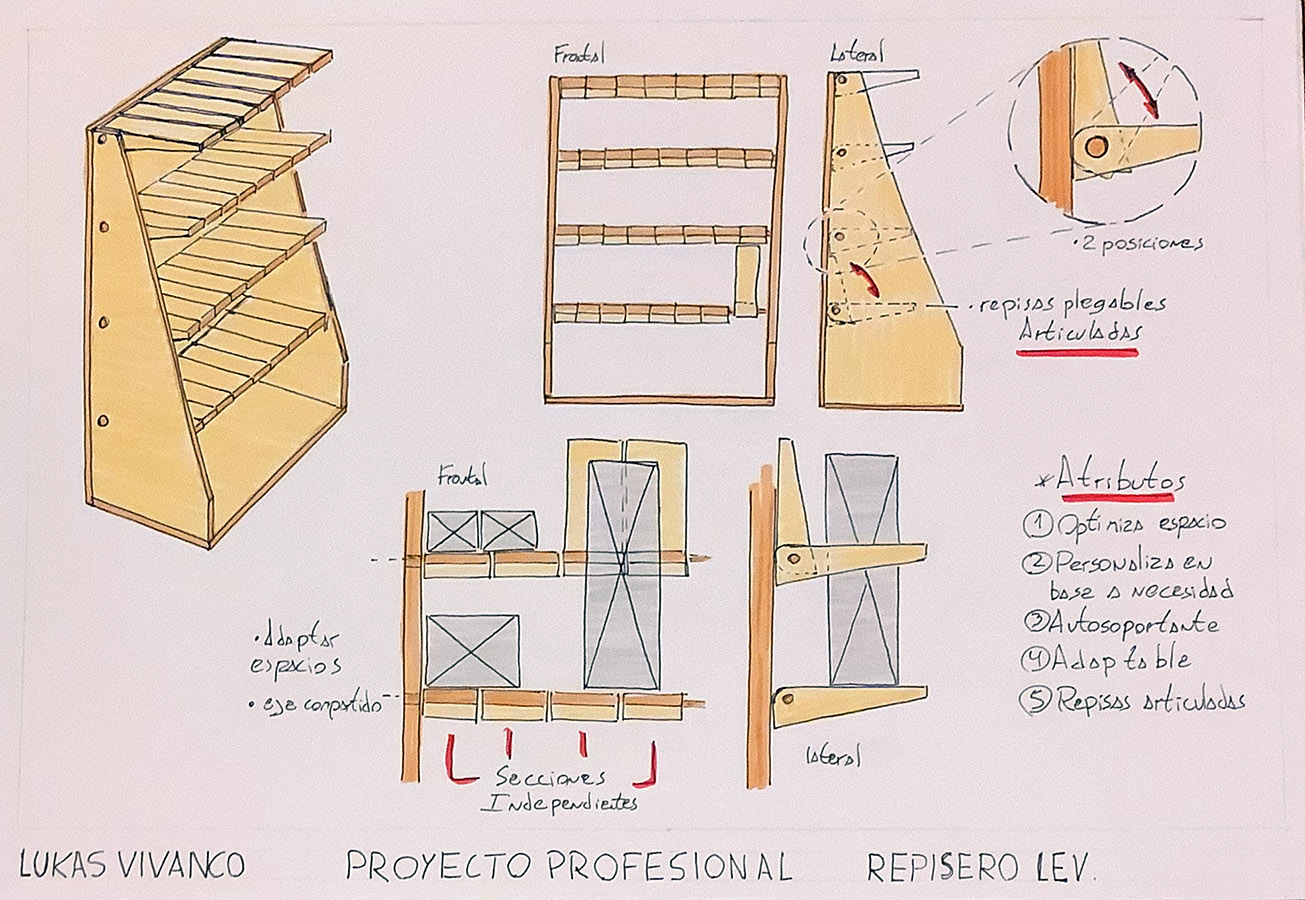 Frontal
Lateral
· 2 posiciones
· repisas plegables
Articuladas
Frontal
· Adaptar
espacios
· eje compartido
Secciones
Independientes
lateral
* Atributos
① Optimiza espacio
② Personaliza en
base a necesidad
③ Autosoportante
④ Adaptable
⑤ Repisas articuladas
LUKAS VIVANCO PROYECTO PROFESIONAL REPISERO LEV.